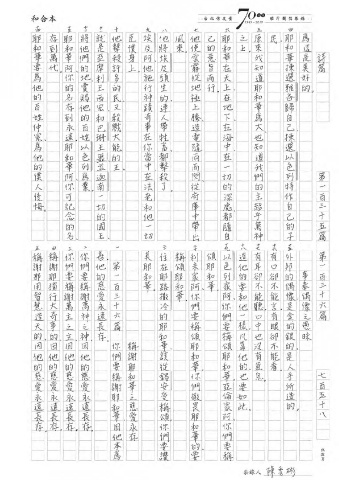 和合本
台北佛光堂
70th
詩篇 第一百三十五篇 第一百三十六篇 七百五十八
為這是美好的
四耶和華揀選雅各歸自己揀選以色列特作自己的子
民
五原來我知道耶和華為大也知道我們的主超乎萬神
之上
六耶和華在天上在地下在海中在一切的深處都隨自
己的意旨而行
七他使雲霧從地極上騰造電隨雨而閃從府庫中帶出
風來
八他將埃及頭生的連人帶牲畜都擊殺了
九埃及阿他施行神蹟奇事在你當中在法老和他一切
臣僕身上
十他擊殺許多的民又戮殺大能的王
就是亞摩利王西宏和巴珊王噩並迦南一切的國王
將他們的地賞賜他的百姓以色列為業
耶和華阿你的名存到永遠耶和華阿你可記念的名
存到萬代
耶和華要為他的百姓伸冤為他的僕人後悔
事奉偶像之愚昧
外邦的偶像是金的銀的是人手所造的
有口卻不能言有眼卻不能看
有耳卻不能聽口中也沒有氣息
造他的要和他一樣凡靠他的也要如此
以色列家阿你們要稱頌耶和華亞倫家阿你們要稱
頌耶和華
利未家阿你們要稱頌耶和華你們敬畏耶和華的要
稱頌耶和華
住在耶路撒冷的耶和華該從錫安受稱頌你們要讚
美耶和華
稱謝耶和華之慈愛永存
第一百三十六篇
一你們要稱謝耶和華因他本為
善他的慈愛永遠長存
二你們要稱謝萬神之神因他的慈愛永遠長存
三你們要稱謝萬主之主因他的慈愛永遠長存
四稱謝那獨行大奇事的因他的慈愛永遠長存
五稱謝那用智慧造天的因他的慈愛永遠長存